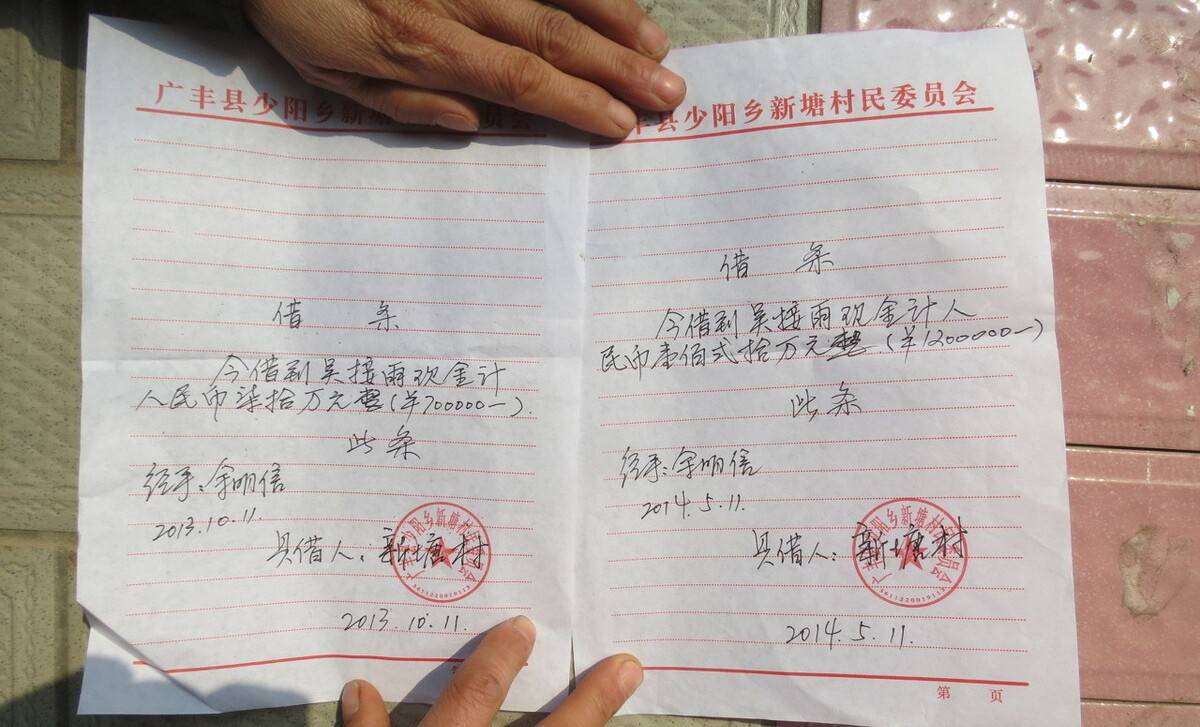 广丰县少阳乡新塘村民委员会
借 条
今借到吴接雨现金计
人民币柒拾万元整(羊700000一).
此条
经手:余明信
2013.10.11.
具借人:新塘村
2013.10.11.
丰县少阳乡新塘村民委员会
借 条
今借到吴接雨现金计人
民币壹佰弍拾万元整.(羊1200000一)
此条
经手:余明信
2014.5.11.
具借人:新塘村
2014.5.11.
第 页